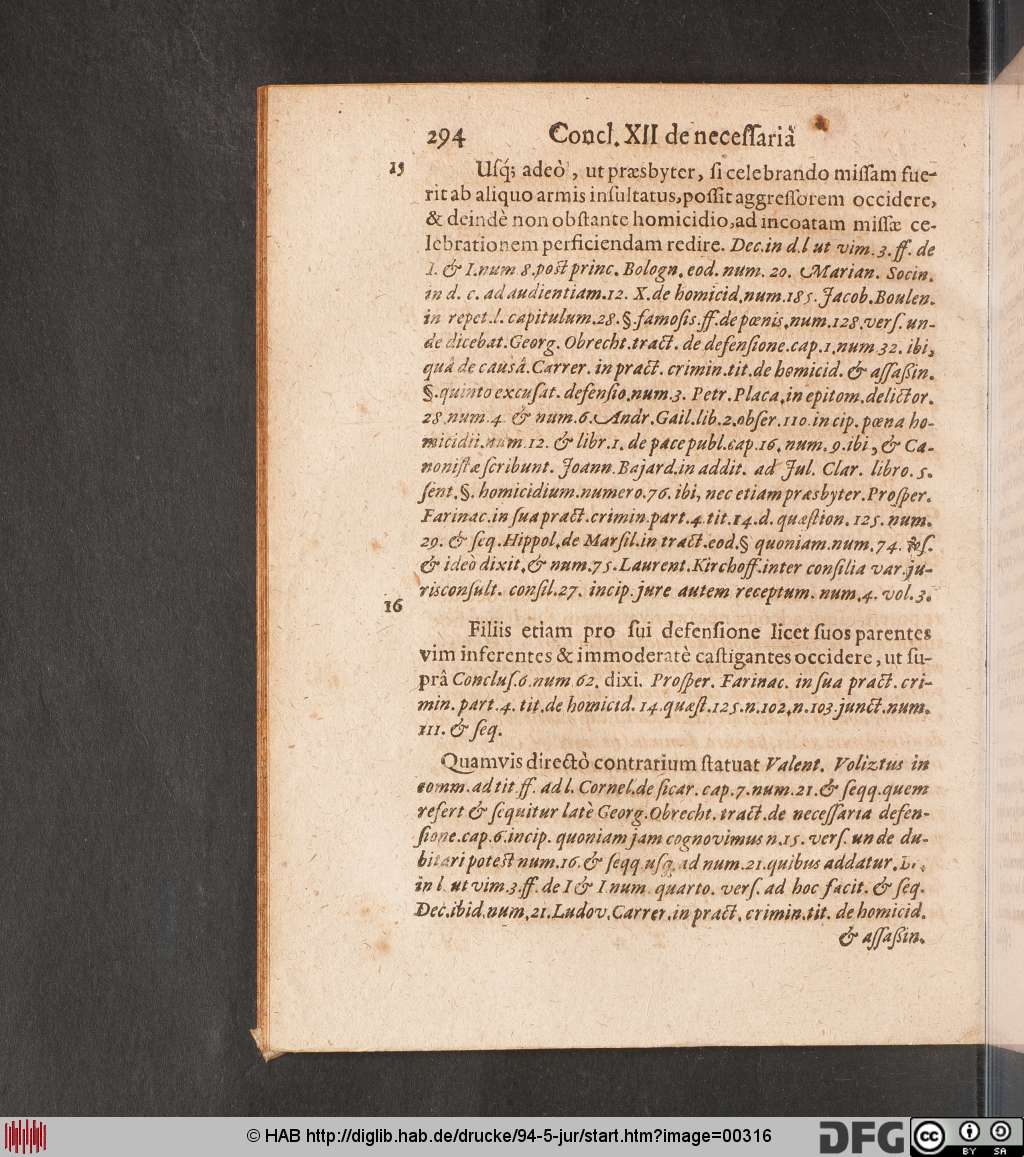 294 Concl. XII de neceſſariâ
15 Uſq́; adeò, ut præsbyter, ſi celebrando miſſam fue-
rit ab aliquo armis inſultatus, poſſit aggreſſorem occidere,
& deindè non obſtante homicidio, ad incoatam miſſæ ce-
lebrationem perficiendam redire. Dec. in d. l ut vim. 3. ff. de
I. & I. num 8. post princ. Bologn. eod. num. 20. Marian. Socin.
in d. c. ad audientiam. 12. X. de homicid. num. 185. Jacob. Boulen.
in repet. l. capitulum. 28. §. famoſis. ff. de pœnis. num. 128. verſ. un-
de dicebat. Georg. Obrecht. tract. de defenſione. cap. 1. num. 32. ibi,
quâ de causâ. Carrer. in pract. crimin. tit. de homicid. & aſſaßin.
§. quinto excuſat. defenſio. num. 3. Petr. Placa. in epitom. delictor.
28. num. 4. & num. 6. Andr. Gail. lib. 2. obſer. 110. in cip. pœna ho-
micidii. num. 12. & libr. 1. de pace publ. cap. 16. num. 9. ibi, & Ca-
nonistæ ſcribunt. Joann. Bajard. in addit. ad Jul. Clar. libro. 5.
ſent. §. homicidium. numero. 76. ibi, nec etiam præsbyter. Proſper.
Farinac. in ſua pract. crimin. part. 4. tit. 14. d. quæſtion. 125. num.
29. & ſeq. Hippol. de Marſil. in tract. eod. § quoniam. num. 74.
& ideò dixit. & num. 75. Laurent. Kirchoff. inter conſilia var. ju-
risconſult. conſil. 27. incip. jure autem receptum. num. 4. vol. 3.
16
Filiis etiam pro ſui defenſione licet ſuos parentes
vim inferentes & immoderatè caſtigantes occidere, ut ſu-
prâ Concluſ. 6. num 62. dixi. Proſper. Farinac. in ſua pract. cri-
min. part. 4. tit. de homicid. 14. quæſt. 125. n. 102. n. 103. junct. num.
111. & ſeq.
Quamvis directò contrarium ſtatuat Valent. Voliztus in
comm. ad tit. ff. ad l. Cornel. de ſicar. cap. 7. num. 21. & ſeqq. quem
refert & ſequitur latè Georg. Obrecht. tract. de neceſſaria defen-
ſione. cap. 6. incip. quoniam jam cognovimus n. 15. verſ. unde du-
bitari potest num. 16. & ſeqq. uſq; ad num. 21. quibus addatur.
in l. ut vim. 3. ff. de I & I. num. quarto. verſ. ad hoc facit. & ſeq.
Dec. ibid. num. 21. Ludov. Carrer. in pract. crimin. tit. de homicid.
& aſſaßin.
© HAB http://diglib.hab.de/drucke/94-5-jur/start.htm?image=00316
DFG
cc BY SA